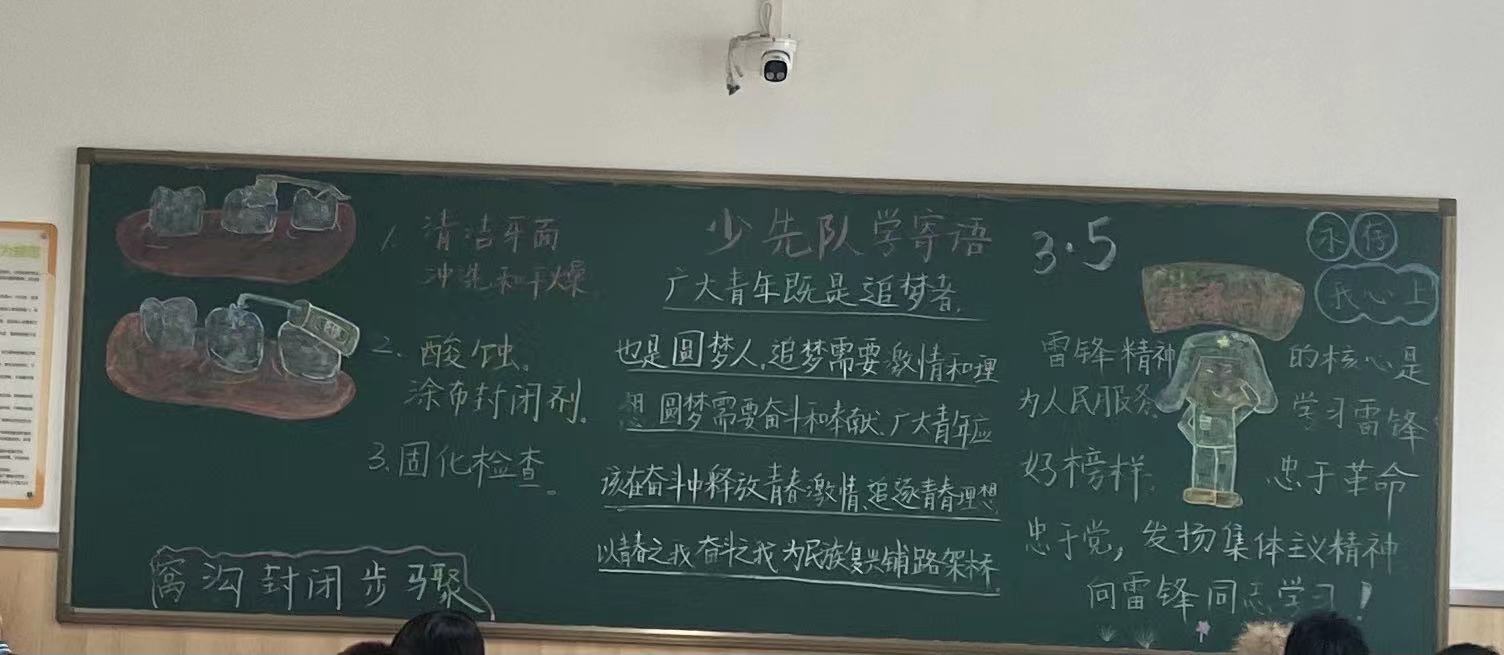 1. 清洁牙面
冲洗和干燥
2. 酸蚀。
涂布封闭剂。
3. 固化检查。
窝沟封闭步骤
少先队学寄语
广大青年既是追梦者,
也是圆梦人。追梦需要激情和理
想 圆梦需要奋斗和奉献。广大青年应
该在奋斗中释放青春激情、追逐青春理想
以青春之我 奋斗之我 为民族复兴铺路架桥
3·5
永存
我心上
雷锋精神的核心是
为人民服务 学习雷锋
好榜样 忠于革命
忠于党，发扬集体主义精神
向雷锋同志学习！